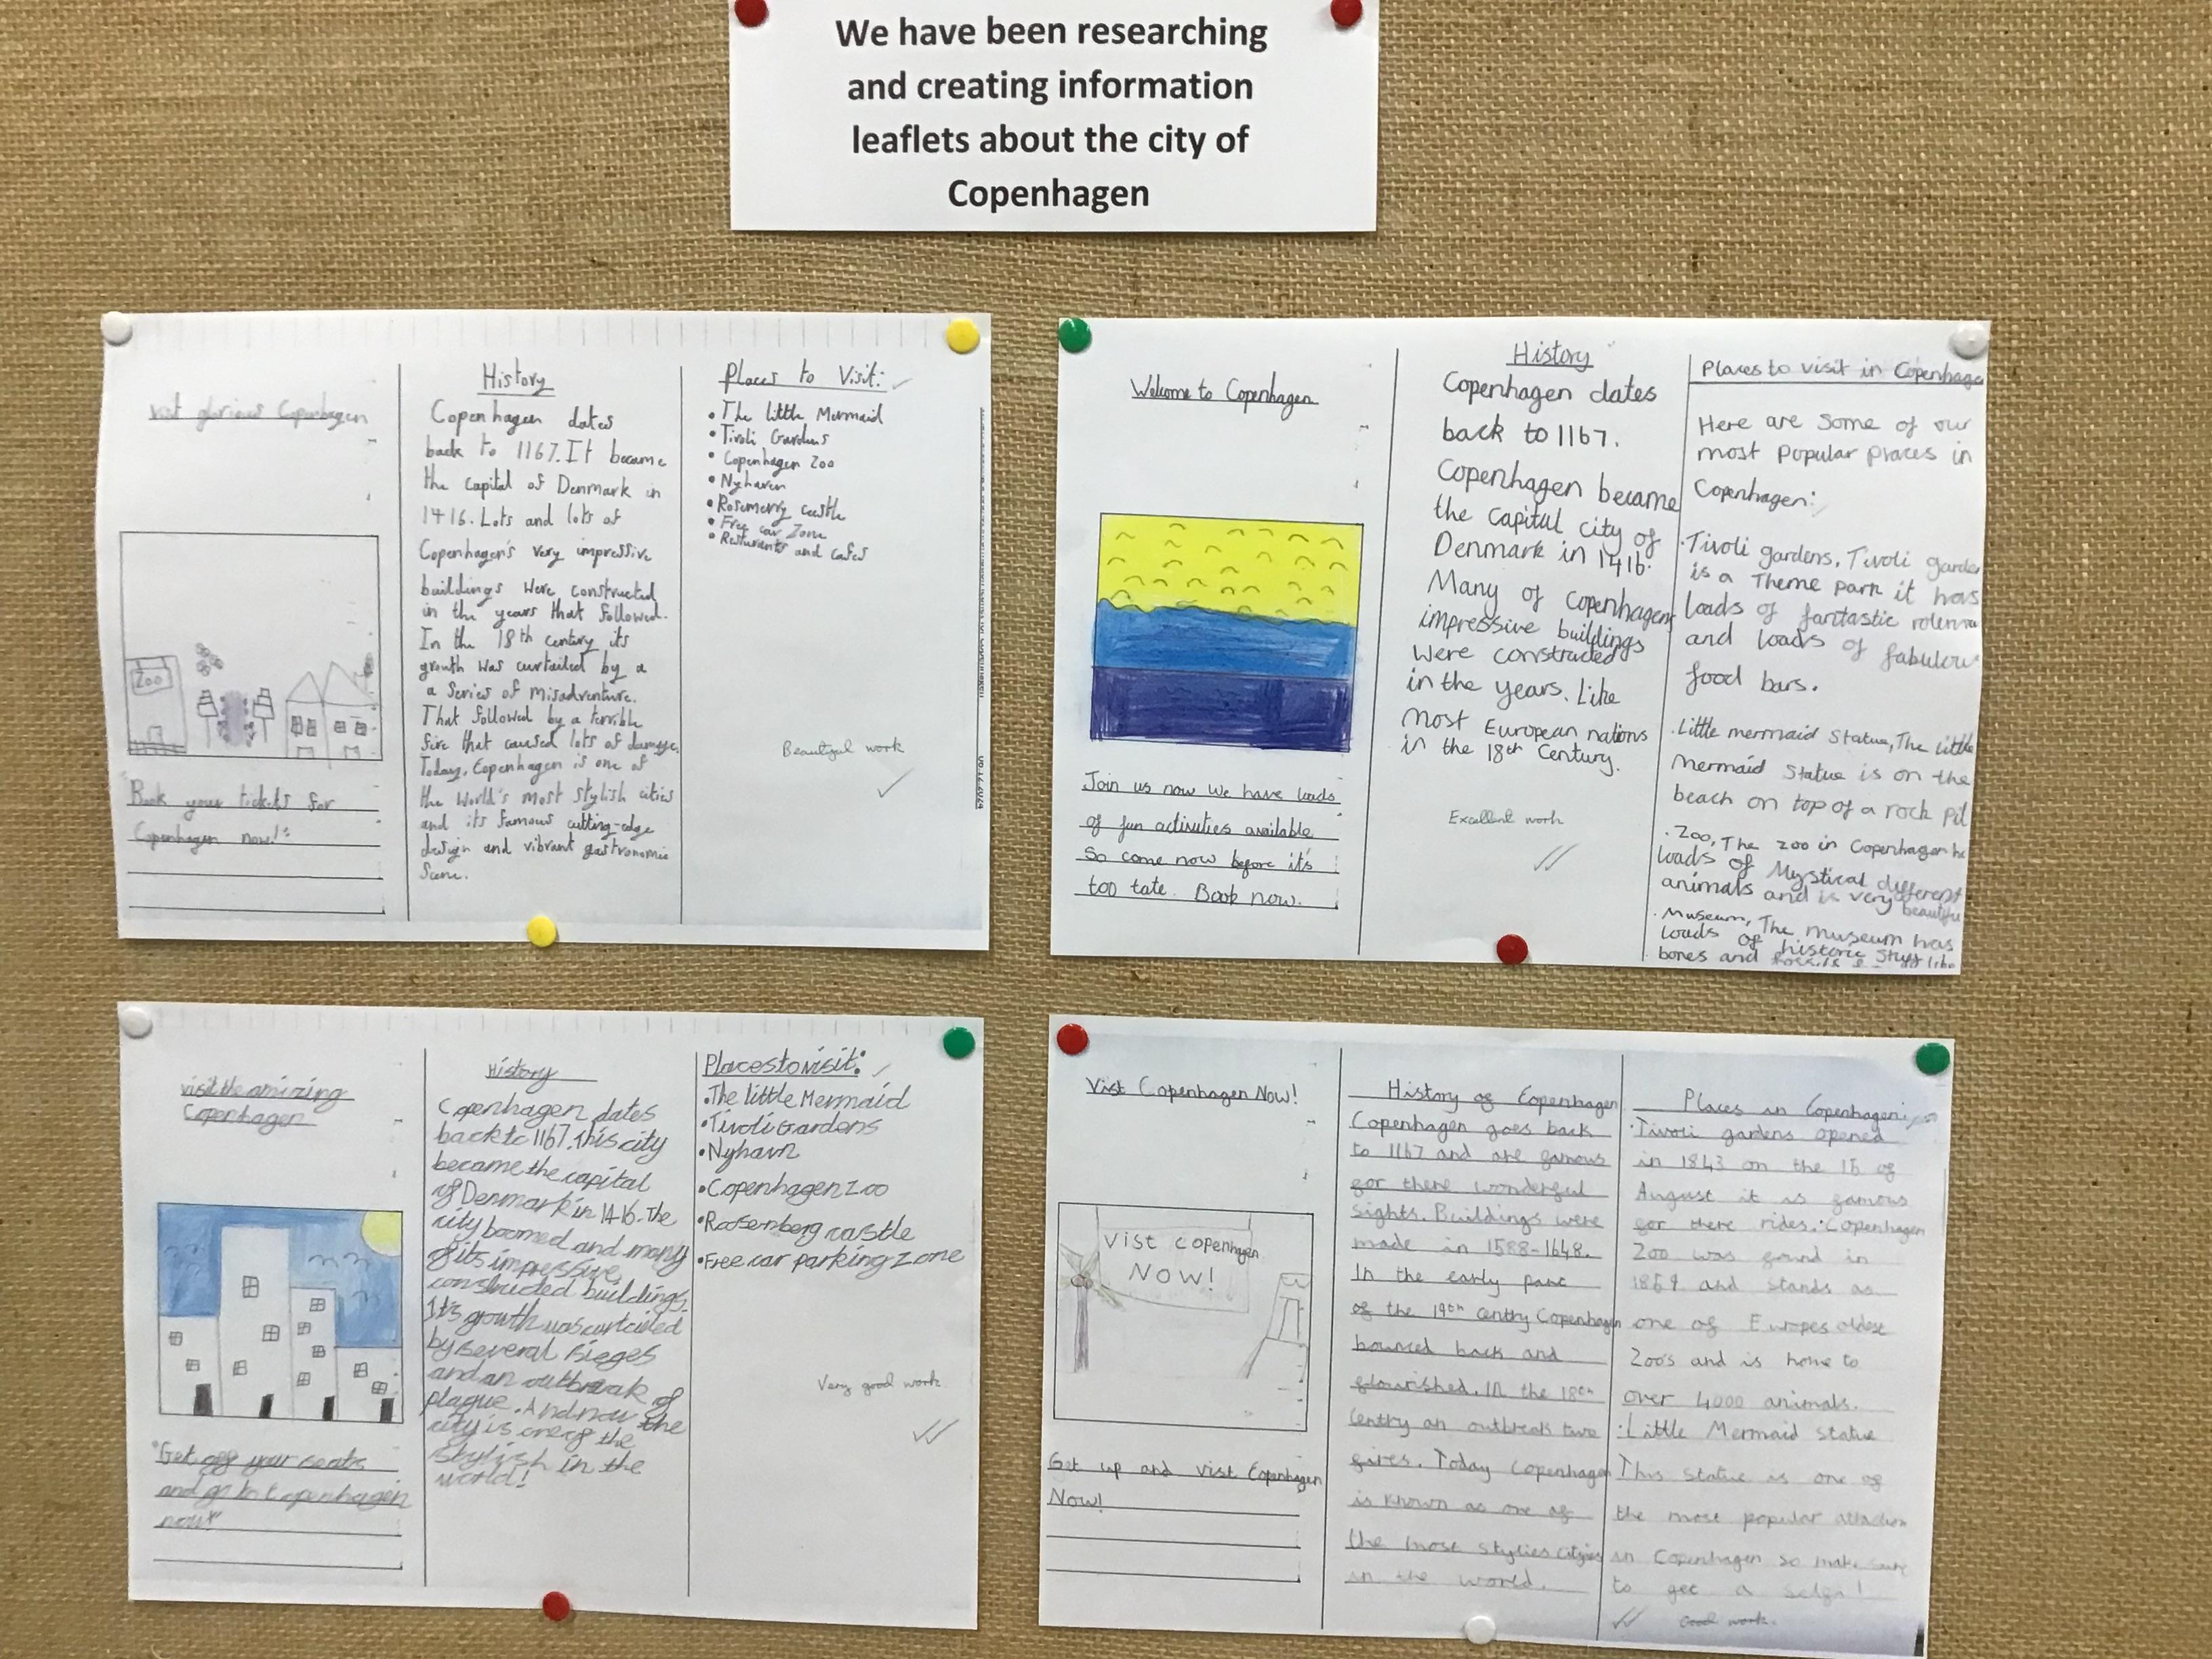 We have been researching
and creating information
leaflets about the city of
Copenhagen
visit glorious Copenhagen
Zoo
Book your tickets for
Copenhagen now!"
History
Copenhagen dates
back to 1167. It became
the capital of Denmark in
1416. Lots and lots of
Copenhagen's very impressive
buildings were constructed
in the years that followed.
In the 18th century its
growth was curtailed by a
a series of misadventure.
That followed by a terrible
fire that caused lots of damage.
Today, Copenhagen is one of
the World's most stylish cities
and its famous cutting-edge
design and vibrant gastronomic
Scene.
Places to Visit:
• The little Mermaid
• Tivoli Gardens
• Copenhagen Zoo
• Nyhaven
• Rosemerry castle
• Free car Zone
• Resturants and cafes
Beautiful work
Welcome to Copenhagen
Join us now We have loads
of fun activities available
So come now before it's
too late. Book now.
History
Copenhagen dates
back to 1167.
Copenhagen became
the capital city of
Denmark in 1416.
Many of Copenhagens
impressive buildings
were constructed
in the years. Like
most European nations
in the 18th Century.
Excellent work
Places to visit in Copenhagen
Here are some of our
most Popular places in
Copenhagen:
• Tivoli gardens, Tivoli garden
is a Theme park it has
loads of fantastic
and loads of fabulous
food bars.
• Little mermaid Statue, The little
Mermaid Statue is on the
beach on top of a rock pil
• Zoo, The zoo in Copenhagen ha
loads of Mystical different
animals and is very beautiful
• Museum, The museum has
loads of historic stuff like
bones and fossils
visit the amizing
Copenhagen
"Get off your seats
and go to Copenhagen
now!"
History
Copenhagen dates
back to 1167. this city
became the capital
of Denmark in 1416. The
city boomed and many
of its impressive
constructed buildings.
It's growth was curtailed
by several sieges
and an outbreak of
plague. And now the
city is one of the
stylish in the
world!
Places to visit:
• The little Mermaid
• Tivoli Gardens
• Nyhavn
• Copenhagen Zoo
• Roosenberg castle
• Free car parking zone
Very good work
Vist Copenhagen Now!
Vist Copenhagen
NOW!
Get up and vist Copenhagen
Now!
History of Copenhagen
Copenhagen goes back
to 1167 and are famous
for there wonderful
sights. Buildings were
made in 1588-1648.
In the early parc
of the 19th centry Copenhagen
bounced back and
flourished. In the 18th
Centry an outbreak two
fires. Today Copenhagen
is known as one of
the most stylies citys
in the world.
Places in Copenhagen:
• Tivoli gardens opened
in 1843 on the 15 of
August it is famous
for there rides. • Copenhagen
Zoo was found in
1859 and stands as
one of Europes oldest
Zoo's and is home to
over 4000 animals.
• Little Mermaid statue
This statue is one of
the most popular attaction
in Copenhagen so make sure
to get a selfie!
Good work.